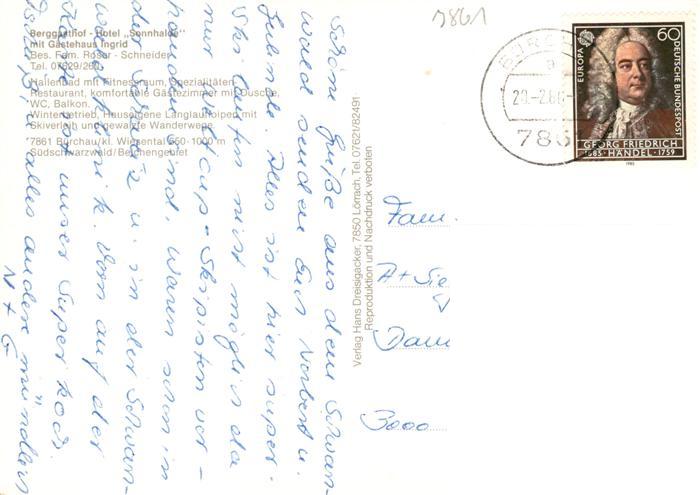 Berggasthof - Hotel „Sonnhalde“
mit Gästehaus Ingrid
Bes. Fam. Roser - Schneider
Tel. 07629/260
Hallenbad mit Fitnessraum, Spezialitäten-
Restaurant, komfortable Gästezimmer mit Dusche,
WC, Balkon.
Winterbetrieb, Hauseigene Langlaufloipen mit
Skiverleih und gewalzte Wanderwege.
7861 Bürchau/kl. Wiesental 650-1000 m
Südschwarzwald/Belchengebiet
Schöne Grüße aus dem Schwarz-
wald senden Euch Norbert u.
Alles ist hier super.
Ski laufen nicht möglich da
nur Weltcup-Skipisten vor-
handen sind, waren schon in
der Schweiz u. in der Schwarz-
Vorn auf der
Karte ist unser Super
alles andere mündlich
N + G
Verlag Hans Dreisigacker, 7850 Lörrach, Tel. 07621/82491
Reproduktion und Nachdruck verboten
7861
786
EUROPA
60
DEUTSCHE BUNDESPOST
GEORG FRIEDRICH
1685 · HÄNDEL · 1759
1985
Fam.
A + Sie
Dam
3000